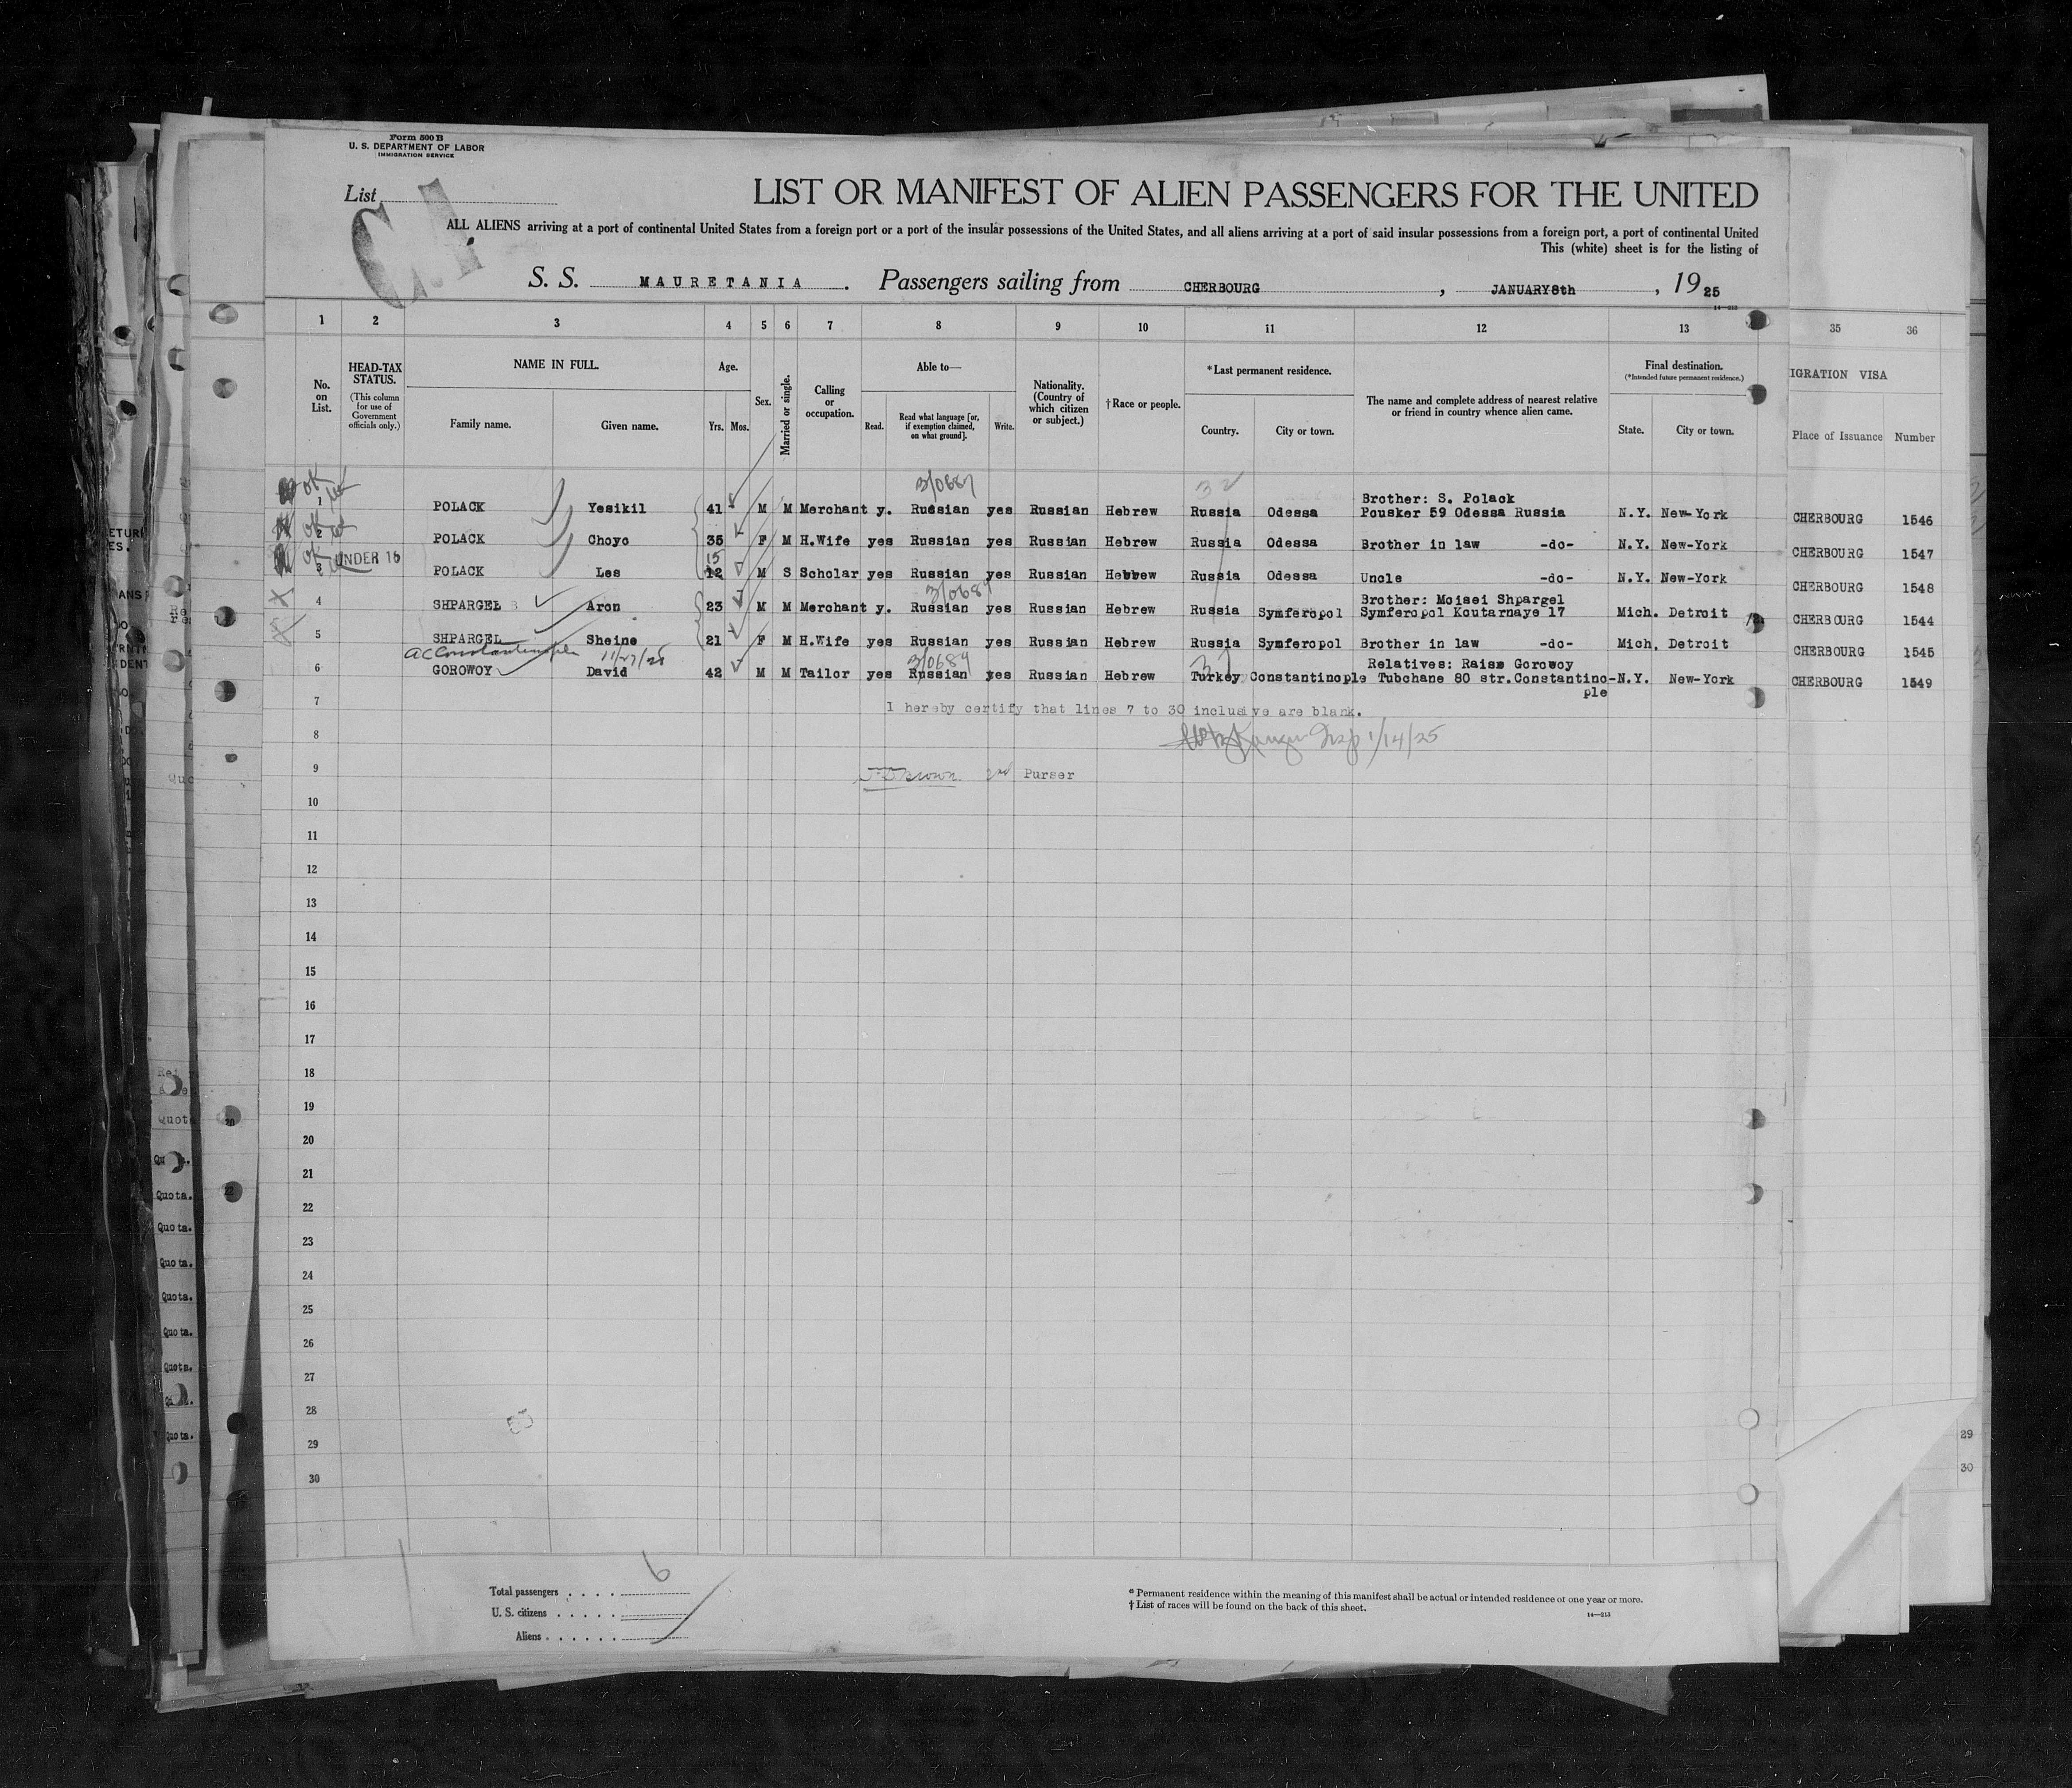 Form 500 B
U. S. DEPARTMENT OF LABOR
IMMIGRATION SERVICE
List
LIST OR MANIFEST OF ALIEN PASSENGERS FOR THE UNITED
ALL ALIENS arriving at a port of continental United States from a foreign port or a port of the insular possessions of the United States, and all aliens arriving at a port of said insular possessions from a foreign port, a port of continental United
This (white) sheet is for the listing of
S. S. MAURETANIA. Passengers sailing from CHERBOURG, JANUARY 8th, 19 25
1 2 3 4 5 6 7 8 9 10 11 12 13 35 36
No. on List.
HEAD-TAX STATUS. (This column for use of Government officials only.)
NAME IN FULL.
Family name. Given name.
Age. Yrs. Mos.
Sex.
Married or single.
Calling or occupation.
Able to—
Read. Read what language [or, if exemption claimed, on what ground]. Write.
Nationality. (Country of which citizen or subject.)
†Race or people.
*Last permanent residence.
Country. City or town.
The name and complete address of nearest relative or friend in country whence alien came.
Final destination. (*Intended future permanent residence.)
State. City or town.
IGRATION VISA
Place of Issuance Number
1 POLACK Yesikil 41 M M Merchant y. Russian yes Russian Hebrew Russia Odessa Brother: S. Polack Pousker 59 Odessa Russia N.Y. New-York CHERBOURG 1546
2 POLACK Choyo 35 F M H.Wife yes Russian yes Russian Hebrew Russia Odessa Brother in law -do- N.Y. New-York CHERBOURG 1547
3 UNDER 16 POLACK Les 12 15 M S Scholar yes Russian yes Russian Hebrew Russia Odessa Uncle -do- N.Y. New-York CHERBOURG 1548
4 SHPARGEL Aron 23 M M Merchant y. Russian yes Russian Hebrew Russia Symferopol Brother: Moisei Shpargel Symferopol Koutarnaye 17 Mich. Detroit CHERBOURG 1544
5 SHPARGEL Sheine 21 F M H.Wife yes Russian yes Russian Hebrew Russia Symferopol Brother in law -do- Mich. Detroit CHERBOURG 1545
6 GOROWOY David 42 M M Tailor yes Russian yes Russian Hebrew Turkey Constantinople Relatives: Raise Gorowoy Tubchane 80 str.Constantino-ple N.Y. New-York CHERBOURG 1549
7 I hereby certify that lines 7 to 30 inclusive are blank.
8 1/14/25
9 Brown 2nd Purser
10
11
12
13
14
15
16
17
18
19
20
21
22
23
24
25
26
27
28
29
30
Total passengers 6
U. S. citizens
Aliens
* Permanent residence within the meaning of this manifest shall be actual or intended residence of one year or more.
† List of races will be found on the back of this sheet.
14—213
Quota.
Quota.
Quota.
Quota.
Quota.
Quota.
Quota.
29
30